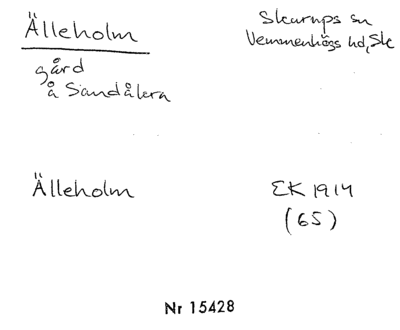 Älleholm
Skurups sn
Vemmenhögs hd, Sk
gård
å Sandåkra
Älleholm
EK 1914
(65)
Nr 15428